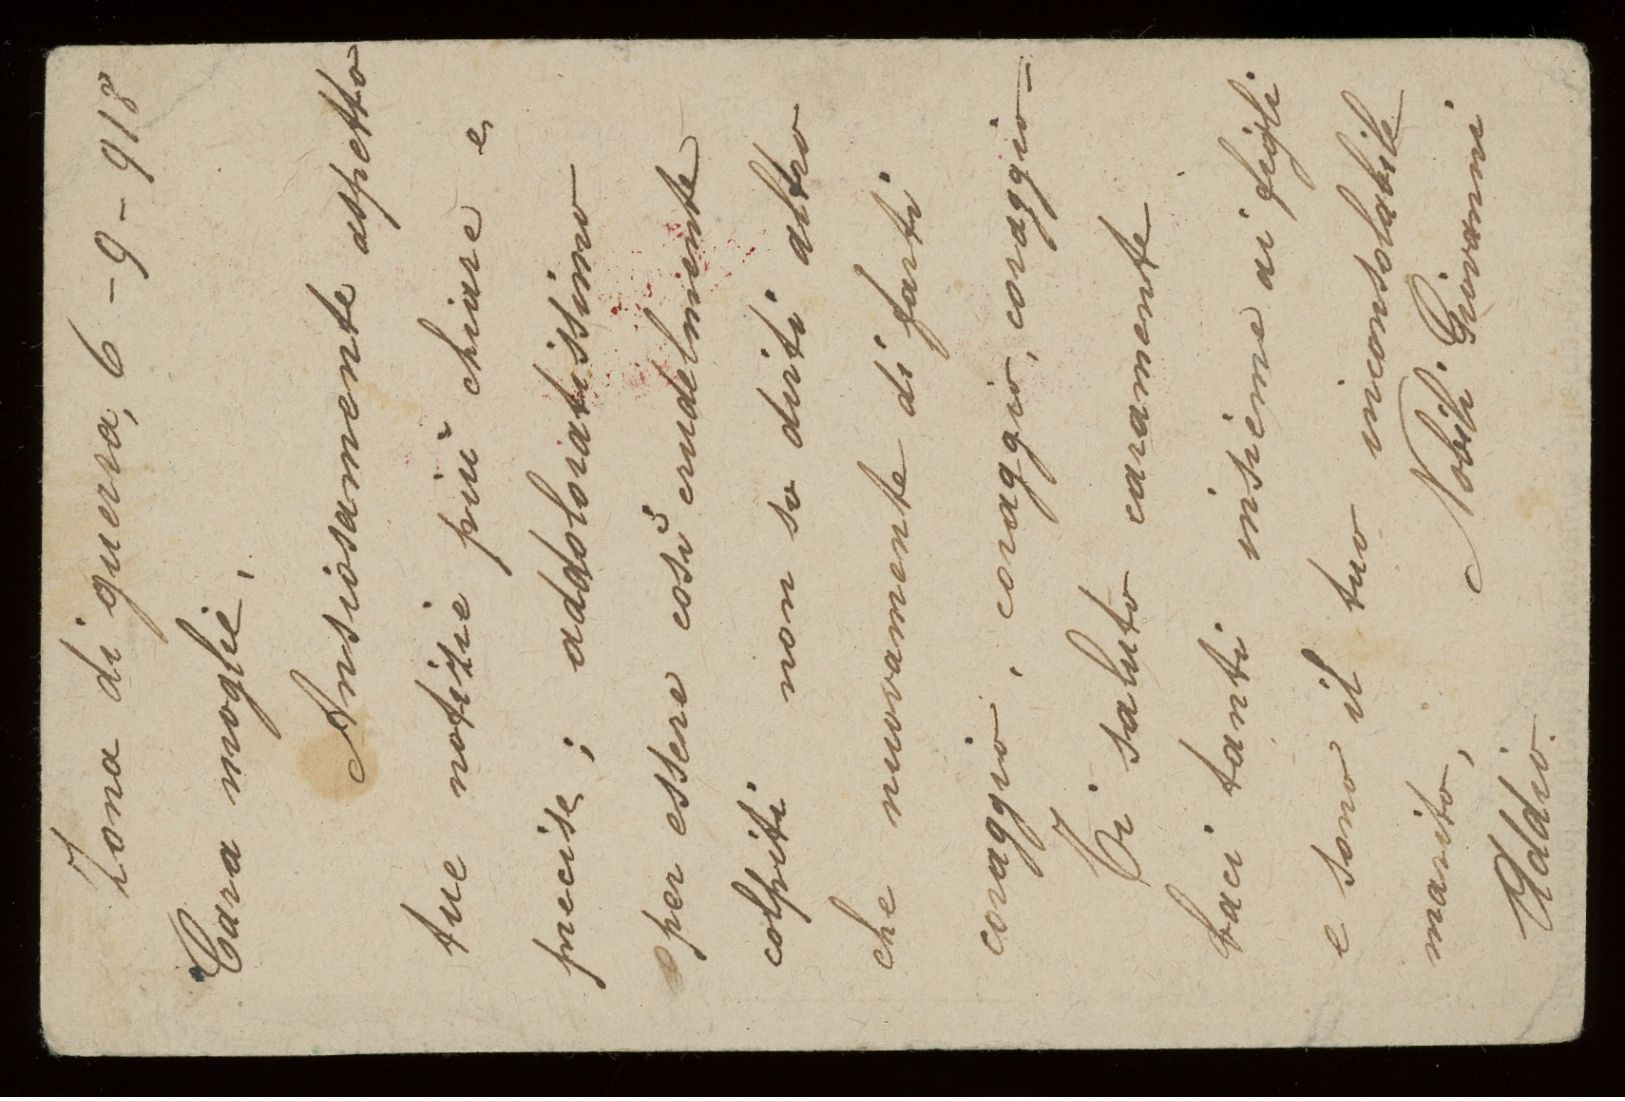 Zona di guerra, 6-9-918
Cara moglie,
Ansiosamente aspetto
tue notizie più chiare e
precise; addoloratissimo
per essere così crudelmente
colpiti non so dirti altro
che nuovamente di farti
coraggio, coraggio, coraggio-
Ti saluto caramente
baci tanti insieme ai figli
e sono il tuo inconsolabile
marito, Nobili Giovanni
Addio.